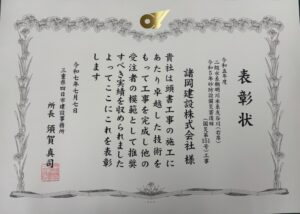 表彰状
令和五年度
諸岡建設株式会社 様
貴社は頭書工事の施工に
あたり卓越した技術を
もって工事を完成し他の
受注者の模範として推奨
すべき実績を収められました
よってここにこれを表彰
します
令和七年七月七日
三重県四日市建設事務所
所長 須賀 真司